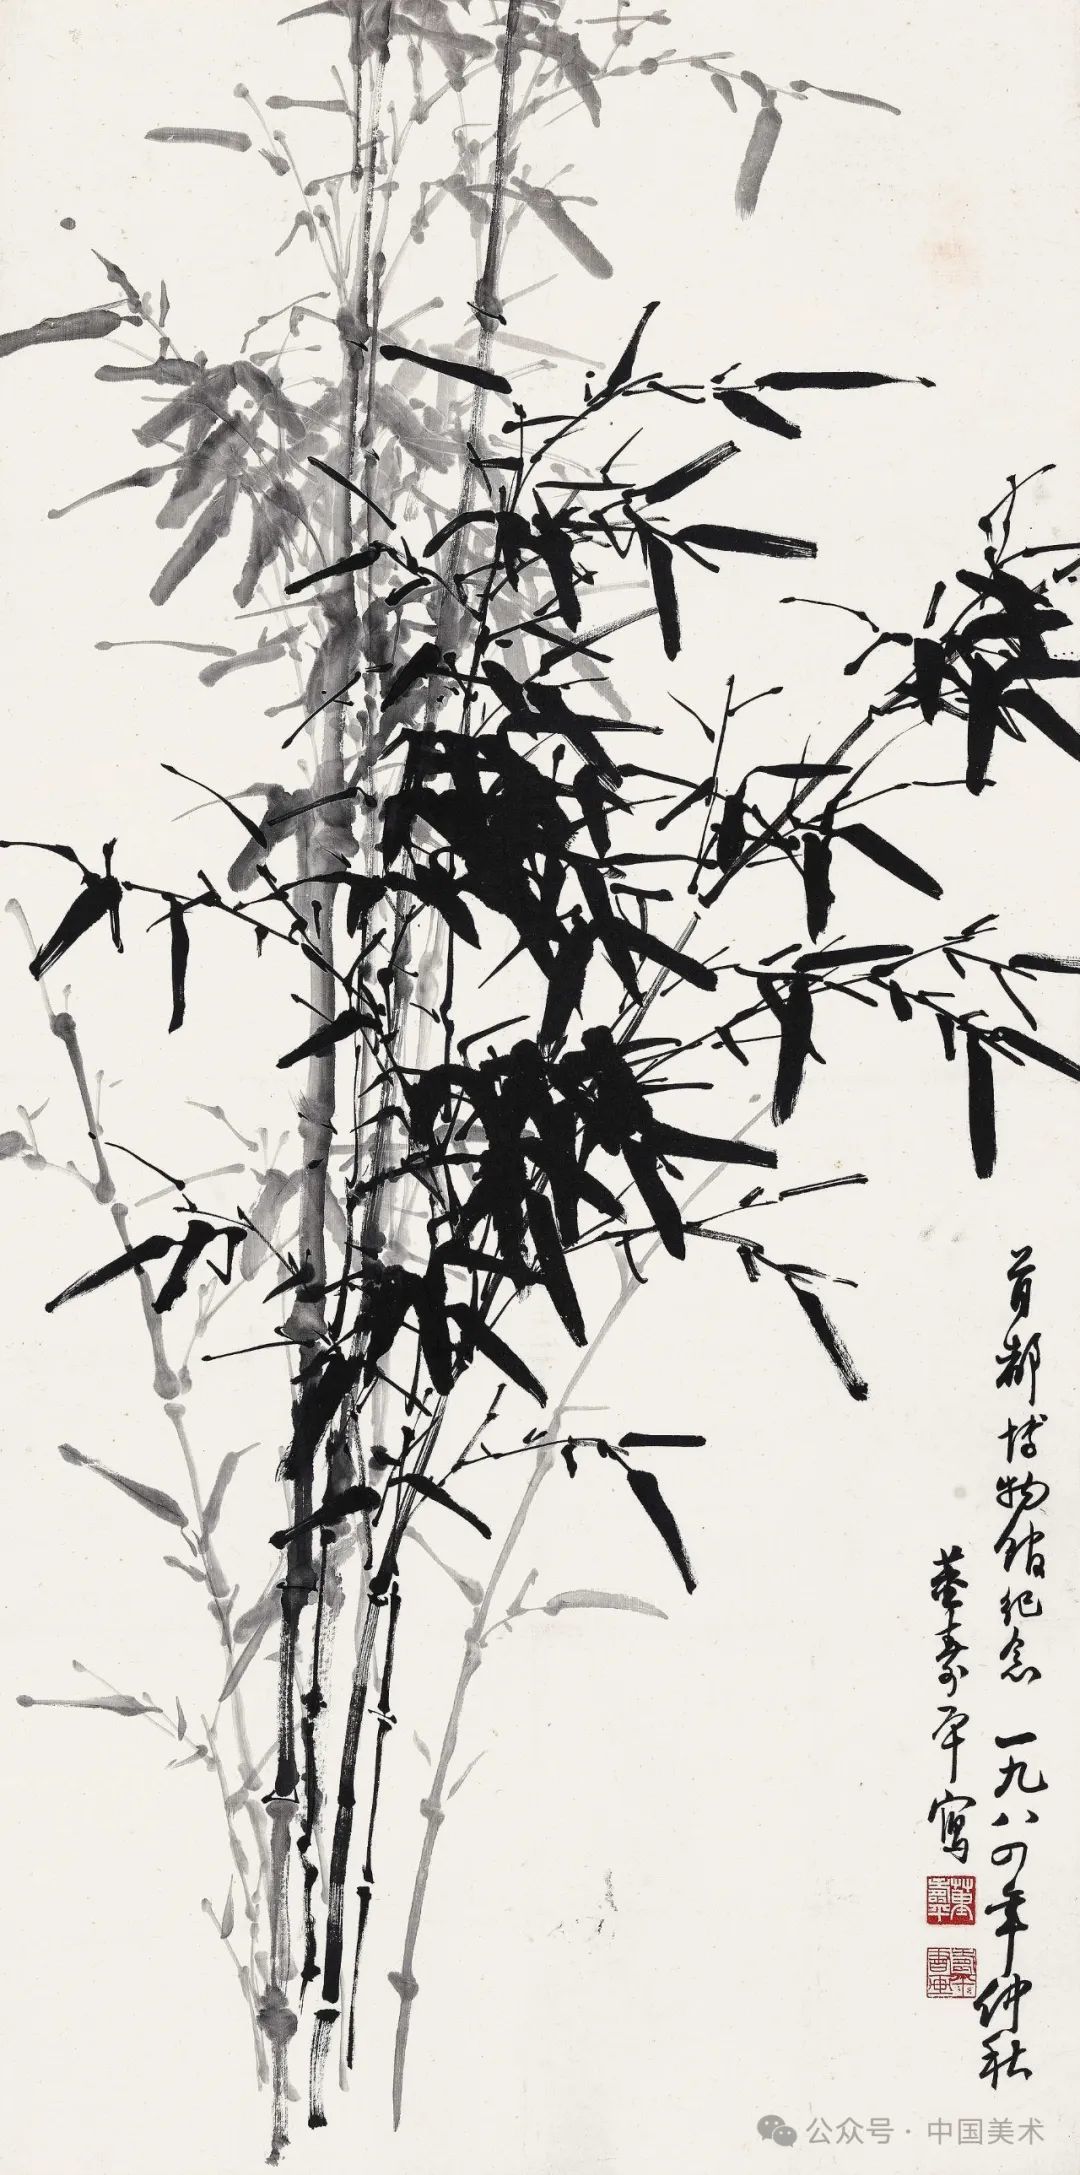 首都博物馆纪念 一九八四年仲秋
董寿平写
董寿平
公众号·中国美术